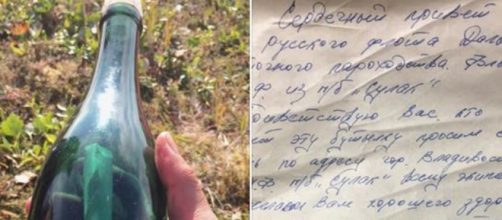 Сердечный привет
русского флота Даль
очного пароходства. Вла
ф из п/б „Сулак“
риветствую Вас, кто
ет эту бутылку просим с
ь по адресу гор. Владивосто
ф п/б „Сулак“ всему экипа
елаем Вам хорошего здор